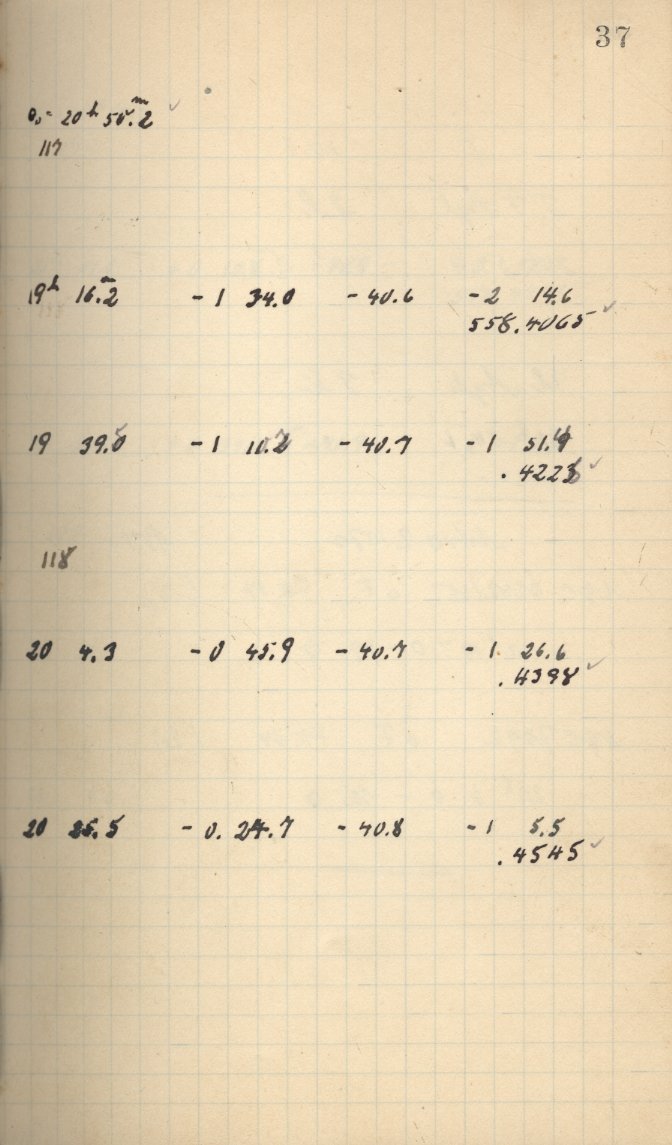 37
θ₀ = 20ʰ 50.ᵐ2 ✓
117
19ʰ 16.ᵐ2 - 1 34.0 - 40.6 - 2 14.6
558.4065 ✓
19 39.5 - 1 10.7 - 40.7 - 1 51.4
.4226 ✓
118
20 4.3 - 0 45.9 - 40.7 - 1 26.6
.4398 ✓
20 25.5 - 0. 24.7 - 40.8 - 1 5.5
.4545 ✓